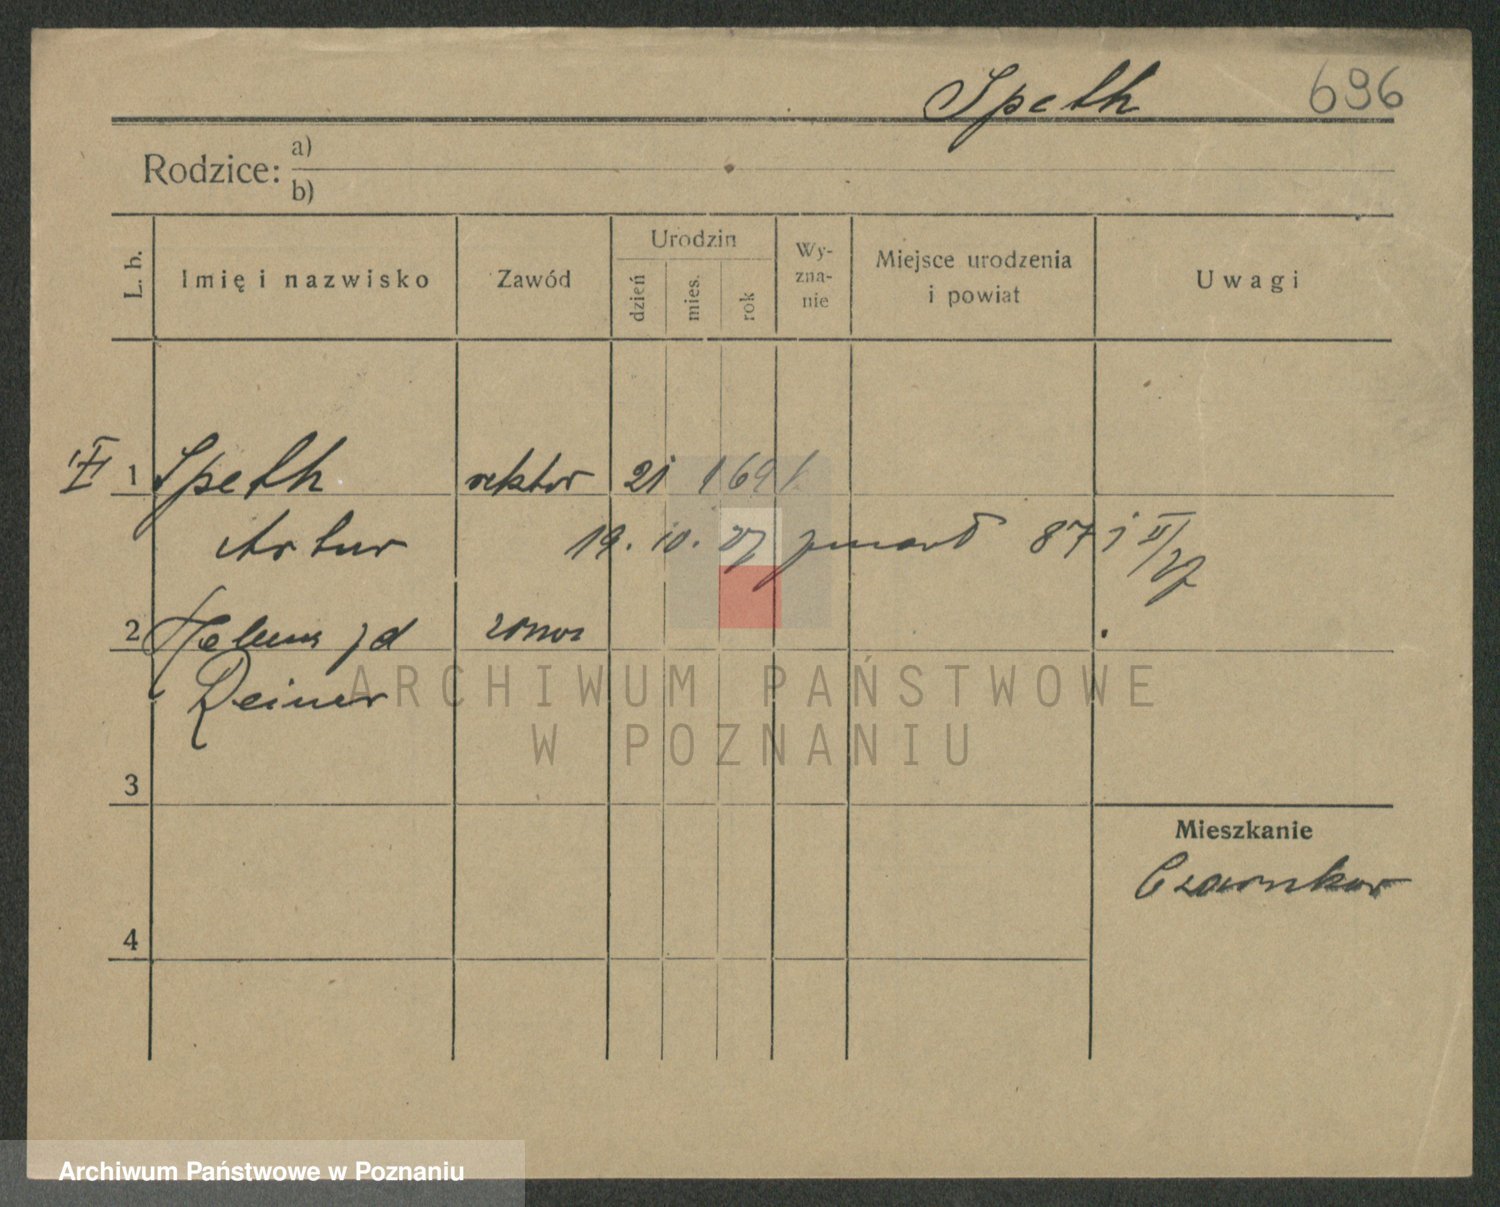 Speth 696
Rodzice: a)
b)
L. b.
Imię i nazwisko
Zawód
Urodzin
dzień
mies.
rok
Wy-
zna-
nie
Miejsce urodzenia
i powiat
Uwagi
1 Speth rektor 21 1 69
Artur 19. 10. 27 zmarł 87
2 Helena żona
Reiner
3
4
Mieszkanie
Czarnków
ARCHIWUM PAŃSTWOWE
W POZNANIU
Archiwum Państwowe w Poznaniu